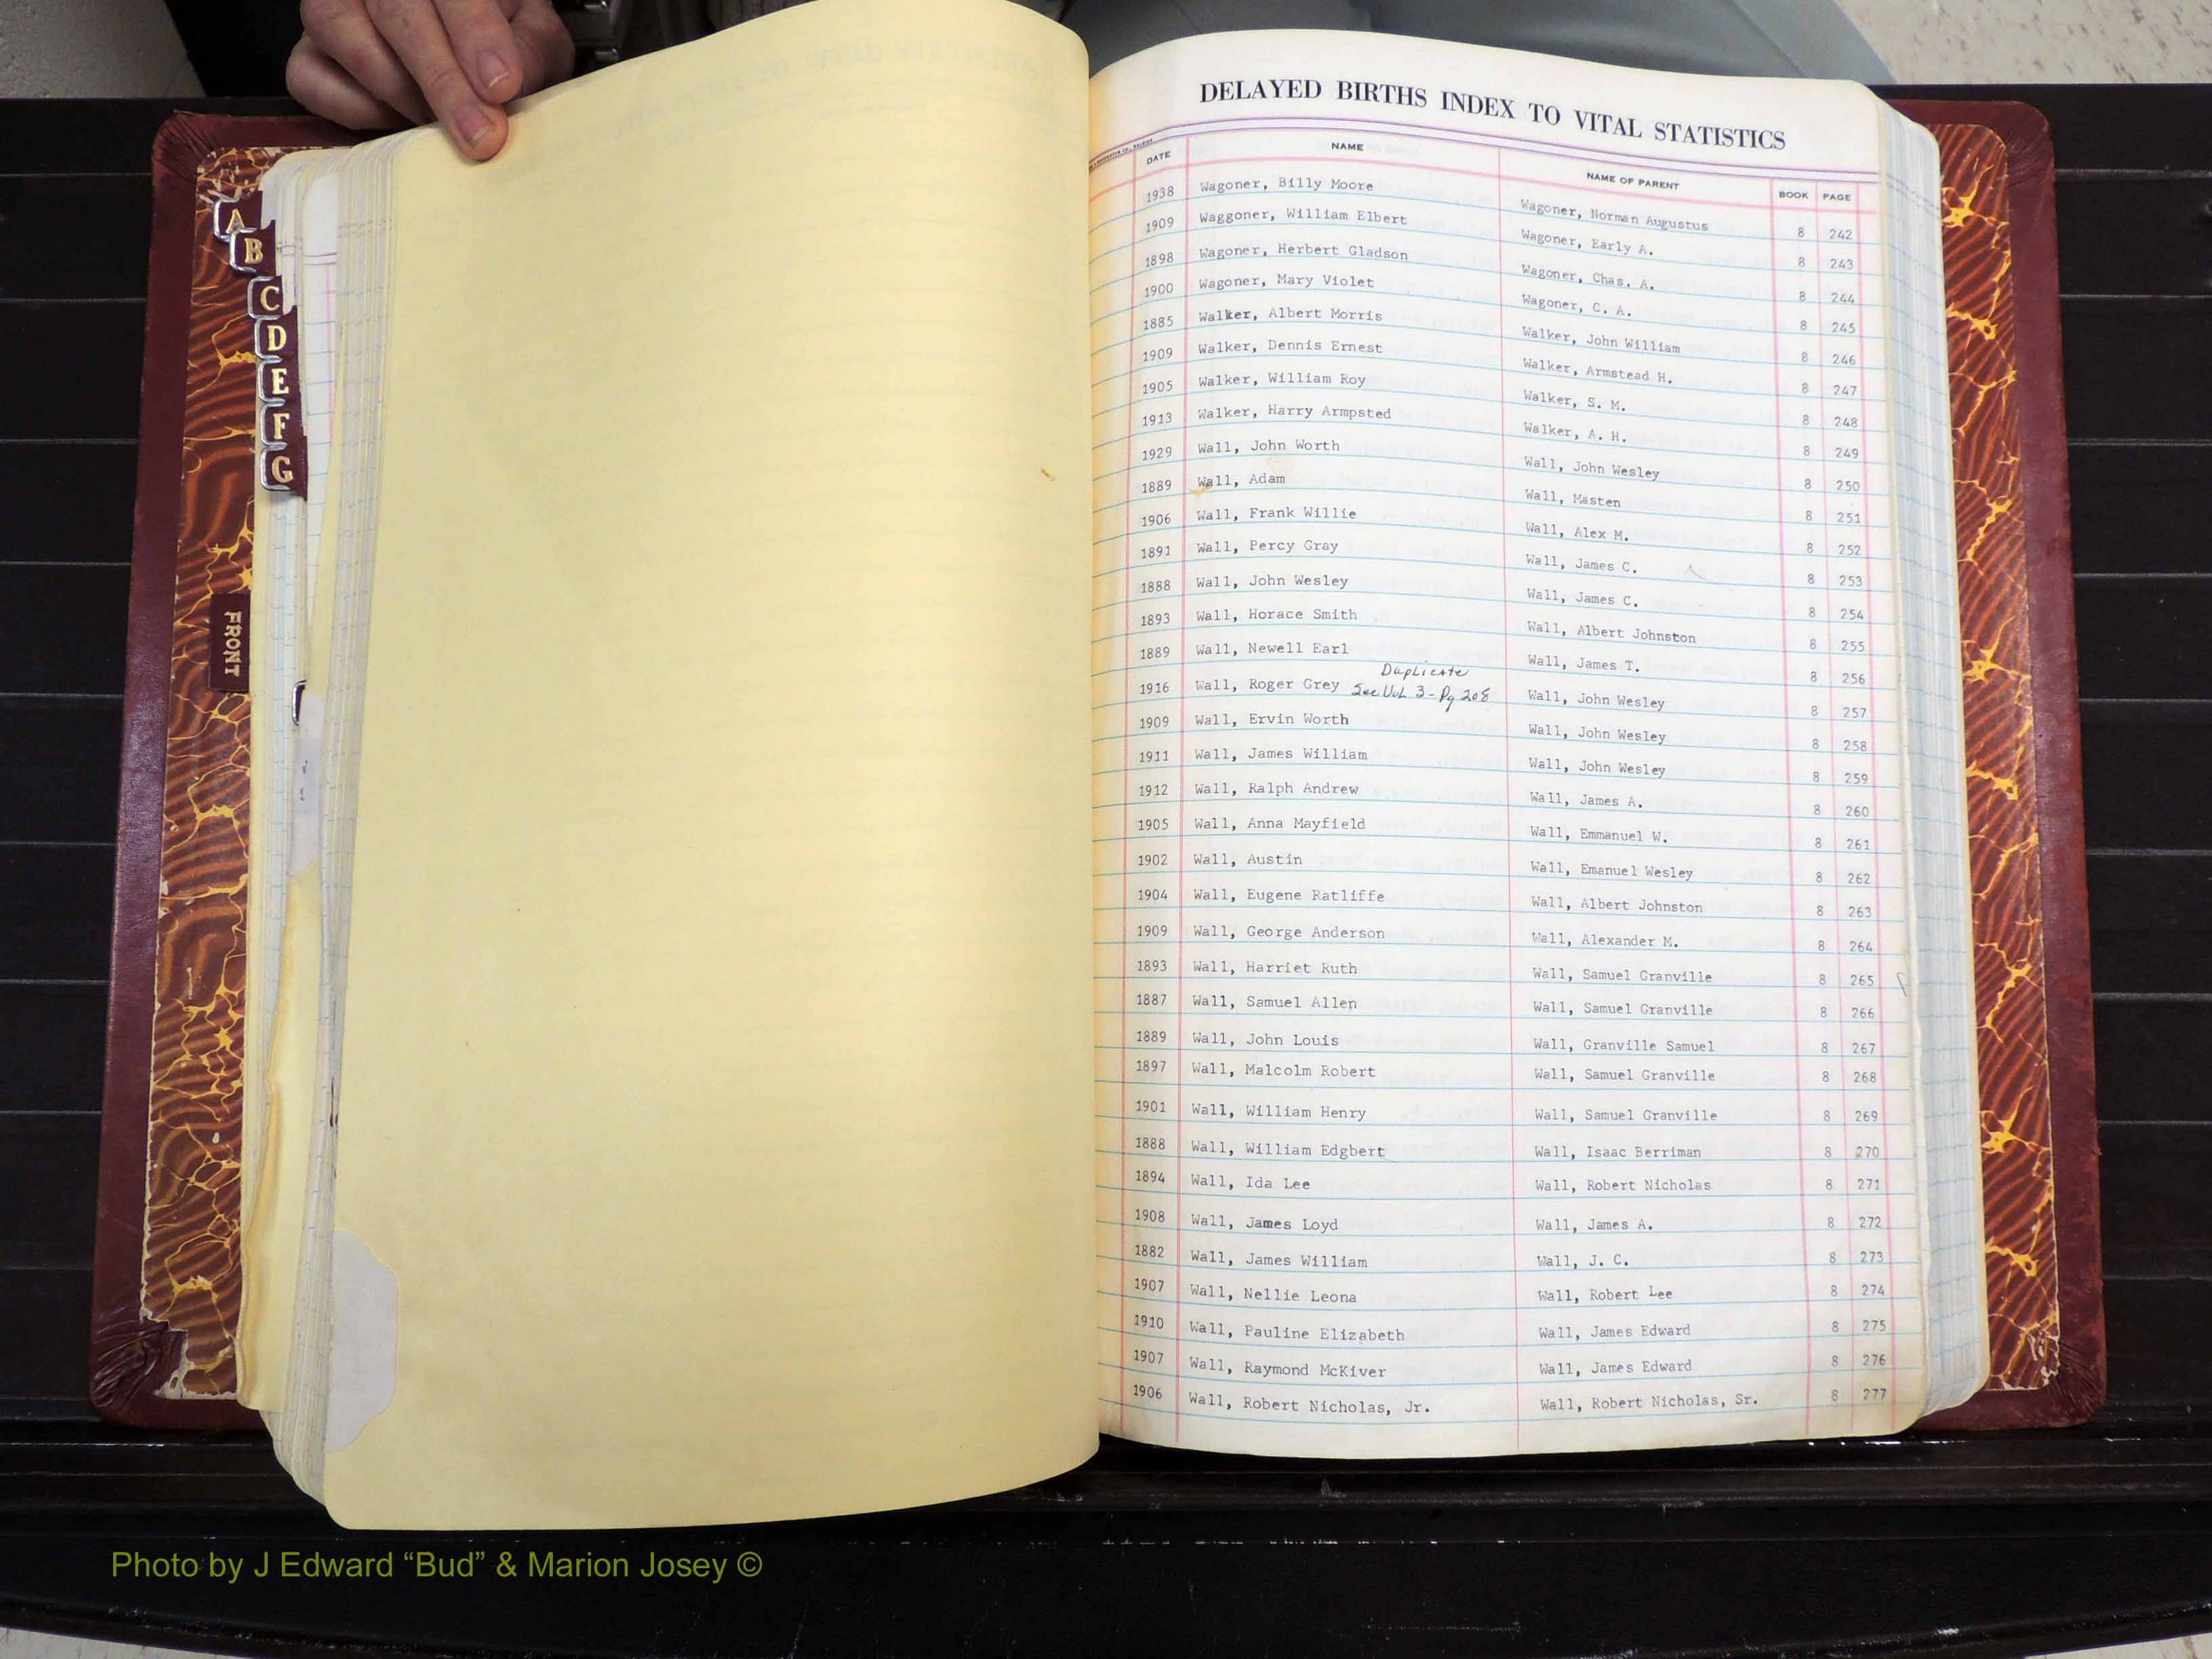 DELAYED BIRTHS INDEX TO VITAL STATISTICS
DATE NAME NAME OF PARENT BOOK PAGE
1938 Wagoner, Billy Moore Wagoner, Norman Augustus 8 242
1909 Waggoner, William Elbert Wagoner, Early A. 8 243
1898 Wagoner, Herbert Gladson Wagoner, Chas. A. 8 244
1900 Wagoner, Mary Violet Wagoner, C. A. 8 245
1885 Walker, Albert Morris Walker, John William 8 246
1909 Walker, Dennis Ernest Walker, Armstead H. 8 247
1905 Walker, William Roy Walker, S. M. 8 248
1913 Walker, Harry Armpsted Walker, A. H. 8 249
1929 Wall, John Worth Wall, John Wesley 8 250
1889 Wall, Adam Wall, Masten 8 251
1906 Wall, Frank Willie Wall, Alex M. 8 252
1891 Wall, Percy Gray Wall, James C. 8 253
1888 Wall, John Wesley Wall, James C. 8 254
1893 Wall, Horace Smith Wall, Albert Johnston 8 255
1889 Wall, Newell Earl Wall, James T. 8 256
Duplicate
1916 Wall, Roger Grey See Vol 3 - Pg 208 Wall, John Wesley 8 257
1909 Wall, Ervin Worth Wall, John Wesley 8 258
1911 Wall, James William Wall, John Wesley 8 259
1912 Wall, Ralph Andrew Wall, James A. 8 260
1905 Wall, Anna Mayfield Wall, Emmanuel W. 8 261
1902 Wall, Austin Wall, Emanuel Wesley 8 262
1904 Wall, Eugene Ratliffe Wall, Albert Johnston 8 263
1909 Wall, George Anderson Wall, Alexander M. 8 264
1893 Wall, Harriet Ruth Wall, Samuel Granville 8 265
1887 Wall, Samuel Allen Wall, Samuel Granville 8 266
1889 Wall, John Louis Wall, Granville Samuel 8 267
1897 Wall, Malcolm Robert Wall, Samuel Granville 8 268
1901 Wall, William Henry Wall, Samuel Granville 8 269
1888 Wall, William Edgbert Wall, Isaac Berriman 8 270
1894 Wall, Ida Lee Wall, Robert Nicholas 8 271
1908 Wall, James Loyd Wall, James A. 8 272
1882 Wall, James William Wall, J. C. 8 273
1907 Wall, Nellie Leona Wall, Robert Lee 8 274
1910 Wall, Pauline Elizabeth Wall, James Edward 8 275
1907 Wall, Raymond McKiver Wall, James Edward 8 276
1906 Wall, Robert Nicholas, Jr. Wall, Robert Nicholas, Sr. 8 277
A
B
C
D
E
F
G
FRONT
Photo by J Edward “Bud” & Marion Josey ©